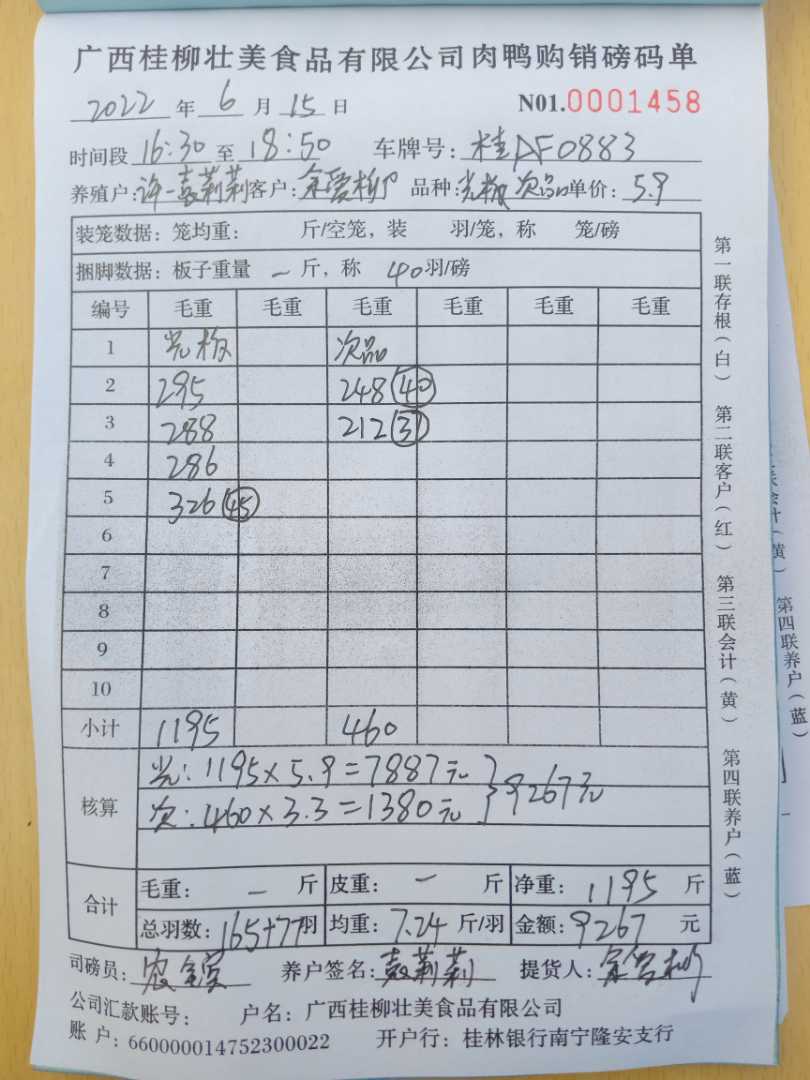 广西桂柳壮美食品有限公司肉鸭购销磅码单
2022 年 6 月 15 日 N01.0001458
时间段 16:30 至 18:50 车牌号: 桂AF0883
养殖户: 莉莉 客户: 品种: 光板 次品 单价: 5.9
装笼数据: 笼均重: 斤/空笼, 装 羽/笼, 称 笼/磅
捆脚数据: 板子重量 一 斤, 称 40 羽/磅
编号 毛重 毛重 毛重 毛重 毛重 毛重
1 光板 次品
2 295 248 40
3 288 212 37
4 286
5 326 45
6
7
8
9
10
小计 1195 460
核算 光: 1195×5.9=7887元
次: 460×3.3=1380元
} 9267元
合计 毛重: 一 斤 皮重: 一 斤 净重: 1195 斤
总羽数: 165+77 羽 均重: 7.24 斤/羽 金额: 9267 元
司磅员: 养户签名: 莉莉 提货人:
公司汇款账号: 户名: 广西桂柳壮美食品有限公司
账 户: 660000014752300022 开户行: 桂林银行南宁隆安支行
第一联存根(白) 第二联客户(红) 第三联会计(黄) 第四联养户(蓝)
第四联养户(蓝)